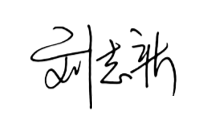 刘志新